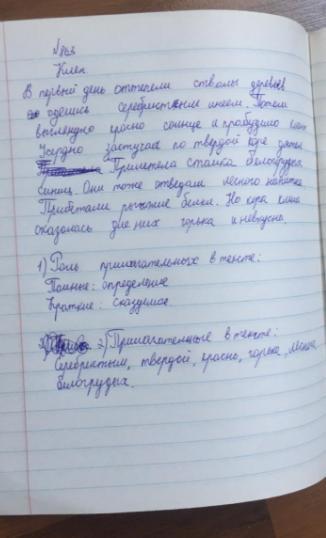 N863
Клен.
В первый день оттепели стволы деревьев
оделись серебристым инеем. Потом
выглянуло красно солнце и пробудило клен
Усердно застучал по твердой коре дятел
Прилетела стайка белогрудых
синиц. Они тоже отведали лесного напитка
Прибежали рыжие белки. Но кора клена
оказалась для них горька и невкусна.
1) Роль прилагательных в тексте:
Полные: определение
Краткие: сказуемое.
2) Прилагательные в тексте:
Серебристым, твердой, красно, горька, лесного
белогрудых.